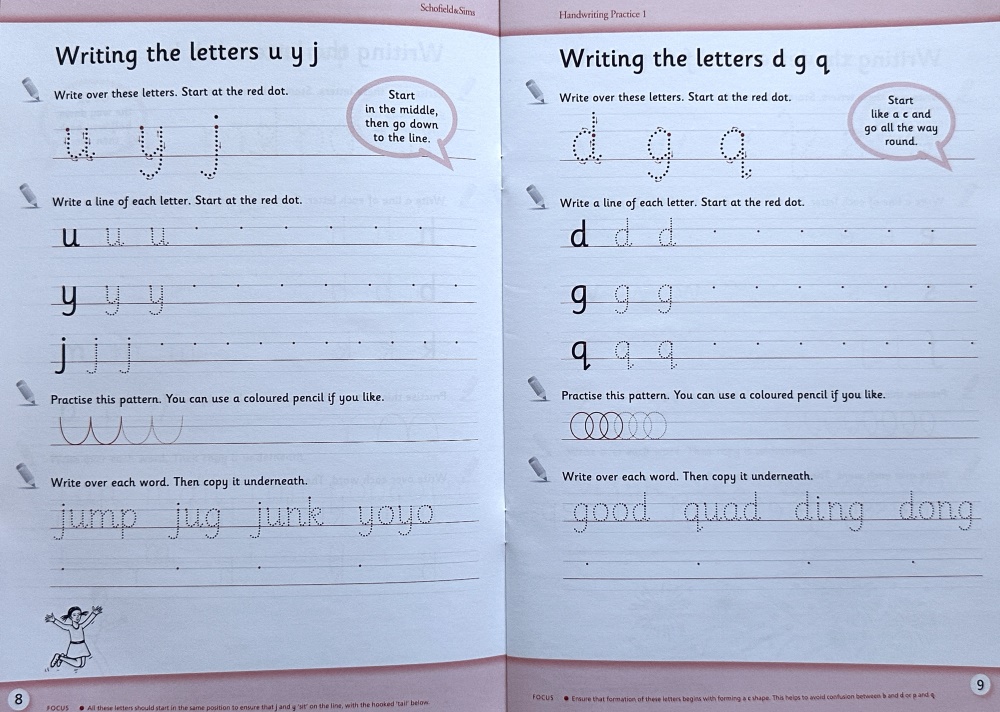 Schofield&Sims
Writing the letters u y j
Write over these letters. Start at the red dot.
Start
in the middle,
then go down
to the line.
u y j
Write a line of each letter. Start at the red dot.
u u u
y y y
j j j
Practise this pattern. You can use a coloured pencil if you like.
Write over each word. Then copy it underneath.
jump jug junk yoyo
8
FOCUS ● All these letters should start in the same position to ensure that j and y 'sit' on the line, with the hooked 'tail' below.
Handwriting Practice 1
Writing the letters d g q
Write over these letters. Start at the red dot.
Start
like a c and
go all the way
round.
d g q
Write a line of each letter. Start at the red dot.
d d d
g g g
q q q
Practise this pattern. You can use a coloured pencil if you like.
Write over each word. Then copy it underneath.
good quad ding dong
FOCUS ● Ensure that formation of these letters begins with forming a c shape. This helps to avoid confusion between b and d or p and q.
9